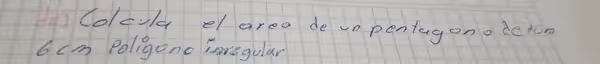 Calcula el area de un pentagono de un
6cm Poligono irregular